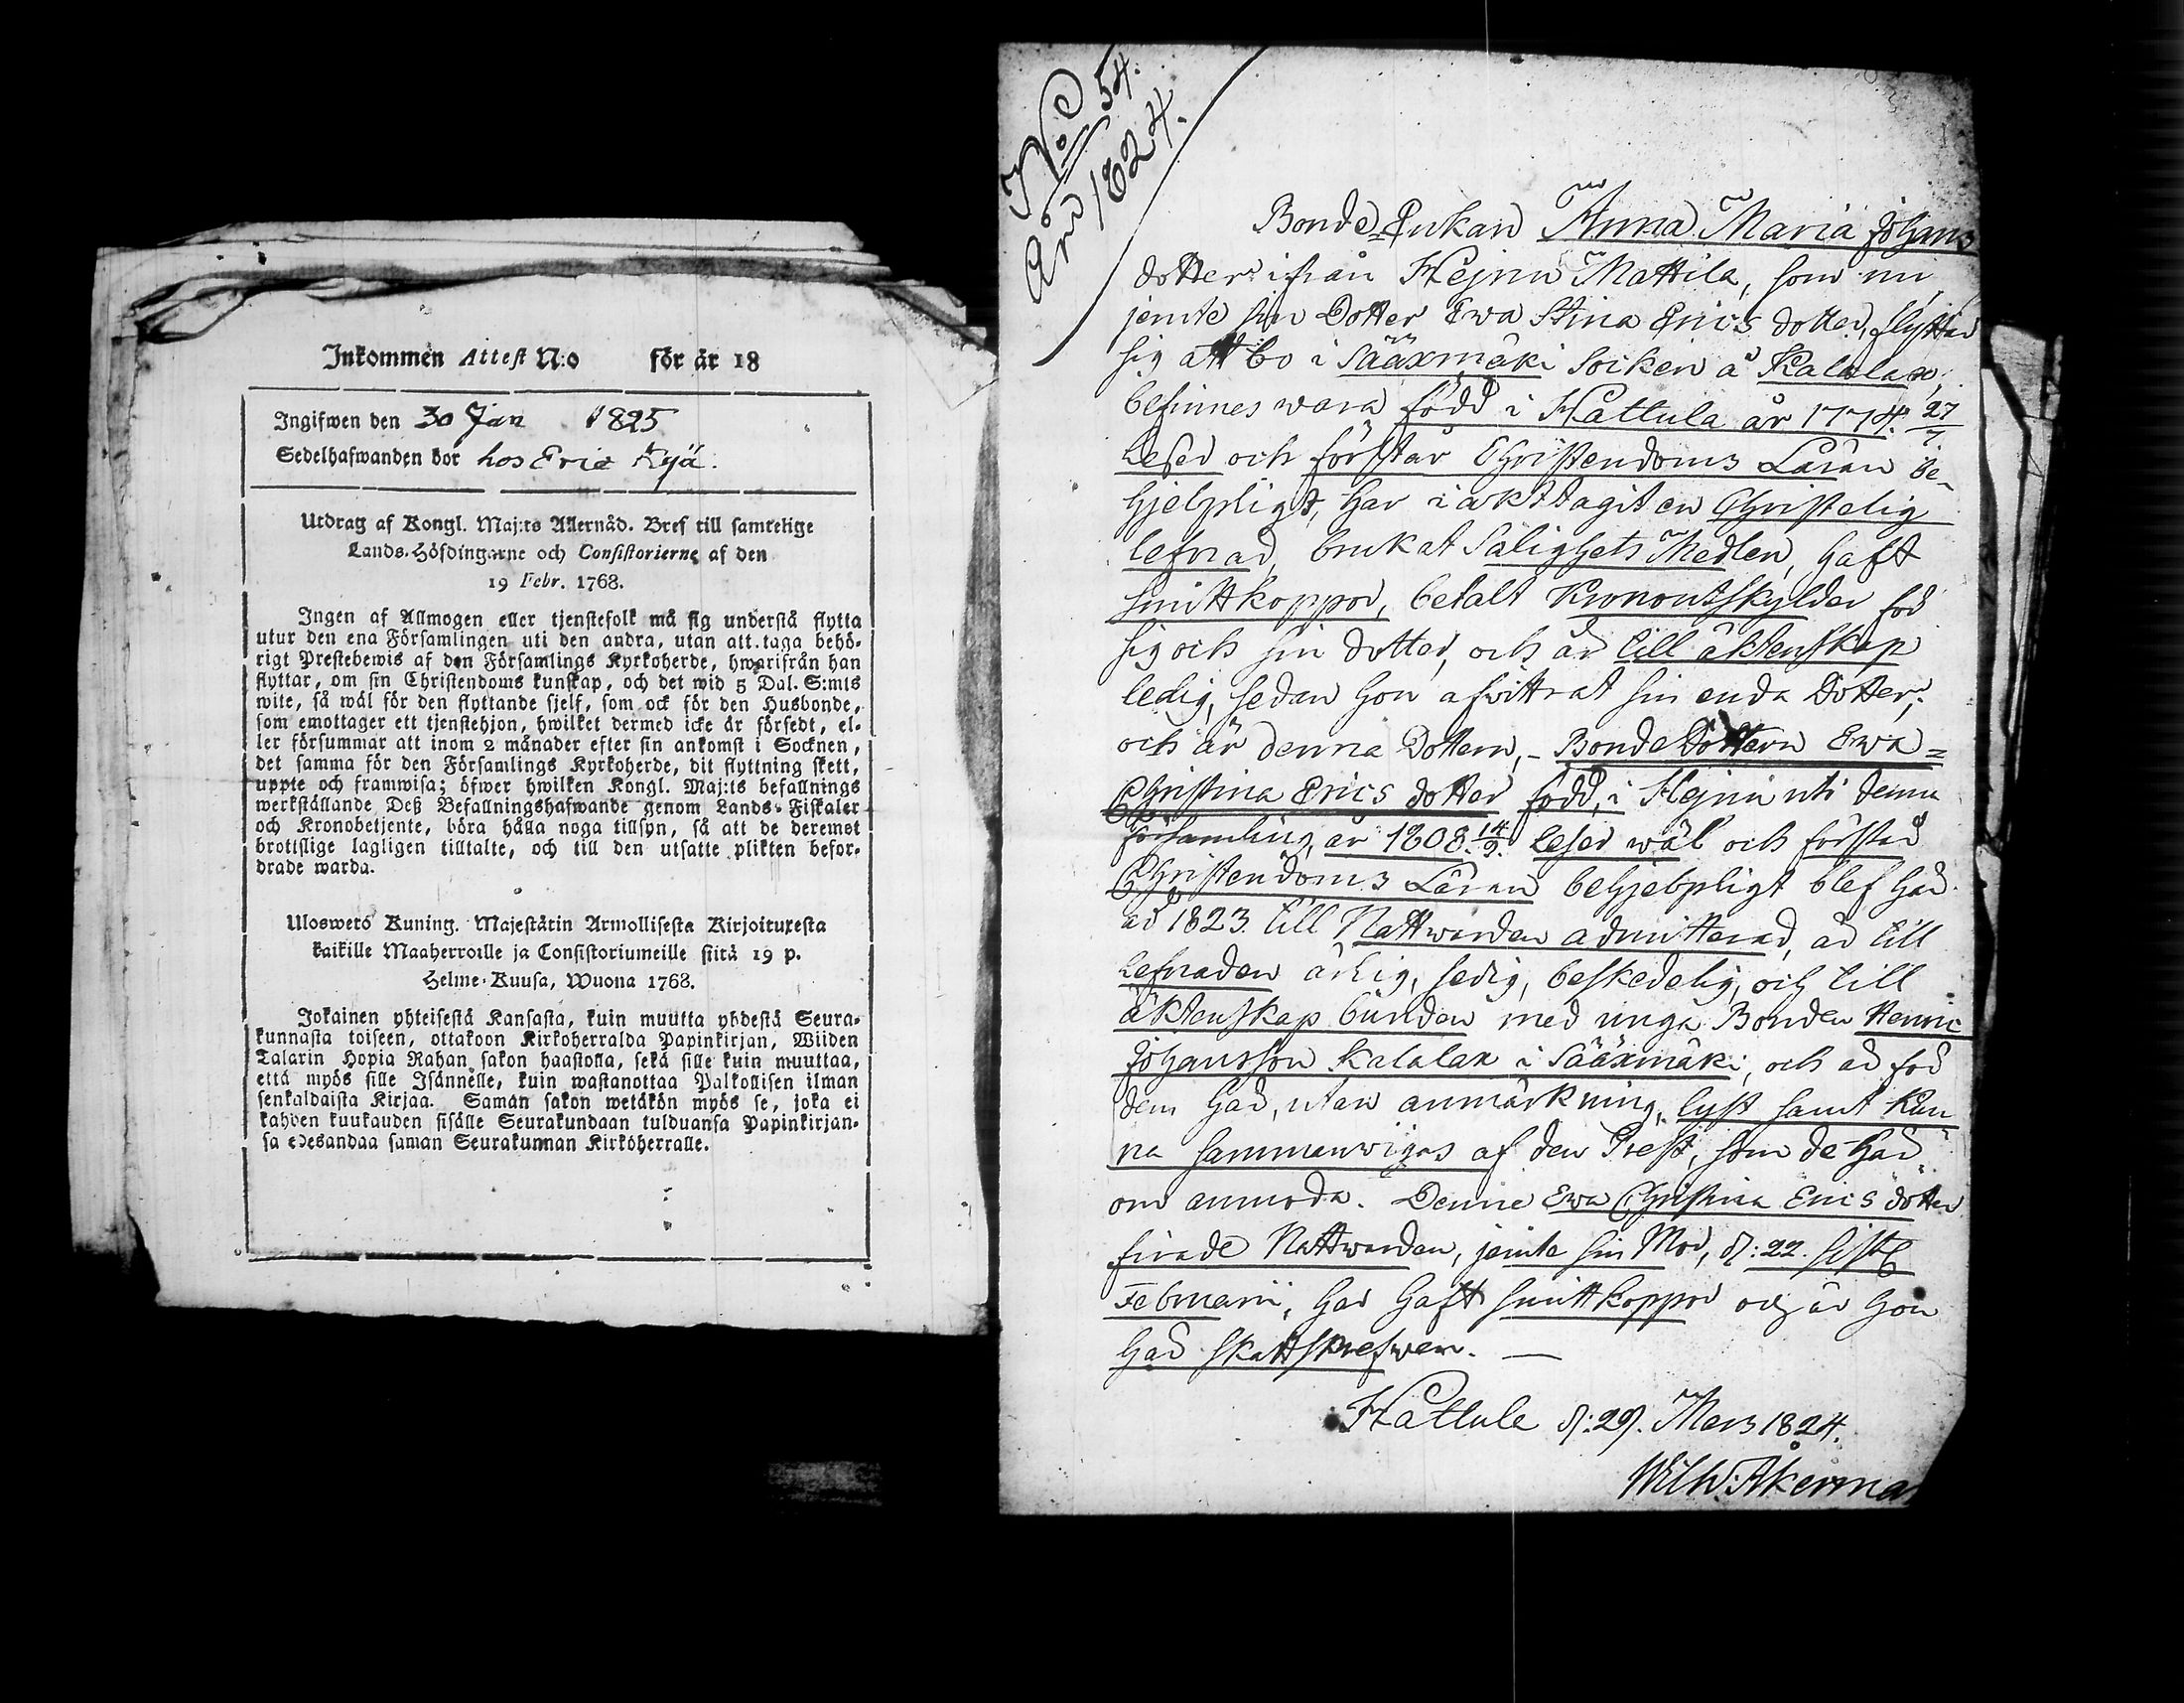 Inkommen Attest N:o för år 18
Ingifwen den 30 Jan 1825
Sedelhafwanden bor hos Eric Kyä.
Utdrag af Kongl. Maj:ts Allernåd. Bref till samtelige
Lands-Höfdingarne och Consistorierne af den
19 Febr. 1768.
Ingen af Allmogen eller tjenstefolk må sig understå flytta
utur den ena Församlingen uti den andra, utan att taga behö-
rigt Prestebewis af den Församlings Kyrkoherde, hwarifrån han
flyttar, om sin Christendoms kunskap, och det wid 5 Dal. S:mts
wite, så wäl för den flyttande sjelf, som ock för den Husbonde,
som emottager ett tjenstehjon, hwilket dermed icke är försedt, el-
ler försummar att inom 2 månader efter sin ankomst i Socknen,
det samma för den Församlings Kyrkoherde, dit flyttning skett,
uppte och framwisa; öfwer hwilken Kongl. Maj:ts befallnings
werkställande Deß Befallningshafwande genom Lands-Fiskaler
och Kronobetjente, böra hålla noga tillsyn, så att de deremot
brottslige lagligen tilltalte, och till den utsatte plikten befor-
drade warda.
Uloswetö Kuning. Majestätin Armollisesta Kirjoituxesta
kaikille Maaherroille ja Consistoriumeille siitä 19 p.
Helme-Kuusa, Wuona 1768.
Jokainen yhteisestä Kansasta, kuin muutta yhdestä Seura-
kunnasta toiseen, ottakoon Kirkoherralda Papinkirjan, Wiiden
Talarin Hopia Rahan sakon haastolla, sekä sille kuin muuttaa,
että myös sille Isännelle, kuin wastanottaa Palkollisen ilman
senkaldaista Kirjaa. Saman sakon wetäkön myös se, joka ei
kahden kuukauden sisälle Seurakundaan tulduansa Papinkirjan-
sa edesandaa saman Seurakunnan Kirkoherralle.
No 54.
År 1824.
Bonde Enkan Anna Maria Johans
dotter ifrån Hejnu Mattila, som nu
jemte sin Dotter Ewa Stina Erics dotter, flyttar
sig att bo i Sääxmäki Socken å Kalalax,
befinnes wara född i Hattula år 1774. 27/7
Läser och förstår Christendoms Läran be-
hjelpligt, har iakttagit en Christelig
lefnad, brukat Salighets Medlen, haft
smittkoppor, betalt Kronoutskylder för
sig och sin dotter, och är till äktenskap
ledig, sedan hon afwittrat sin enda Dotter;
och är denna Dottern, - Bonde Dottern Ewa =
Christina Erics dotter född, i Hejnu uti denna
församling, år 1808. 14/9. Läser wäl och förstår
Christendoms Läran behjelpligt blef här
år 1823. till Nattwarden admitterad, är till
Lefnaden ärlig, sedig, beskedelig, och till
äktenskap bunden med unga Bonden Henric
Johansson Kalalax i Sääxmäki, och är för
dem här, utan anmärkning, lyst samt kun
na sammanwigas af den Prest, som de här
om anmoda. Denne Ewa Christina Erics dotter
firade Nattwarden, jemte sin Mor, d: 22. sistl
Februarii, har haft smittkoppor och är hon
här skattskrefwen. —
Hattula d: 29. Mars 1824.
Wilh: Åkerman